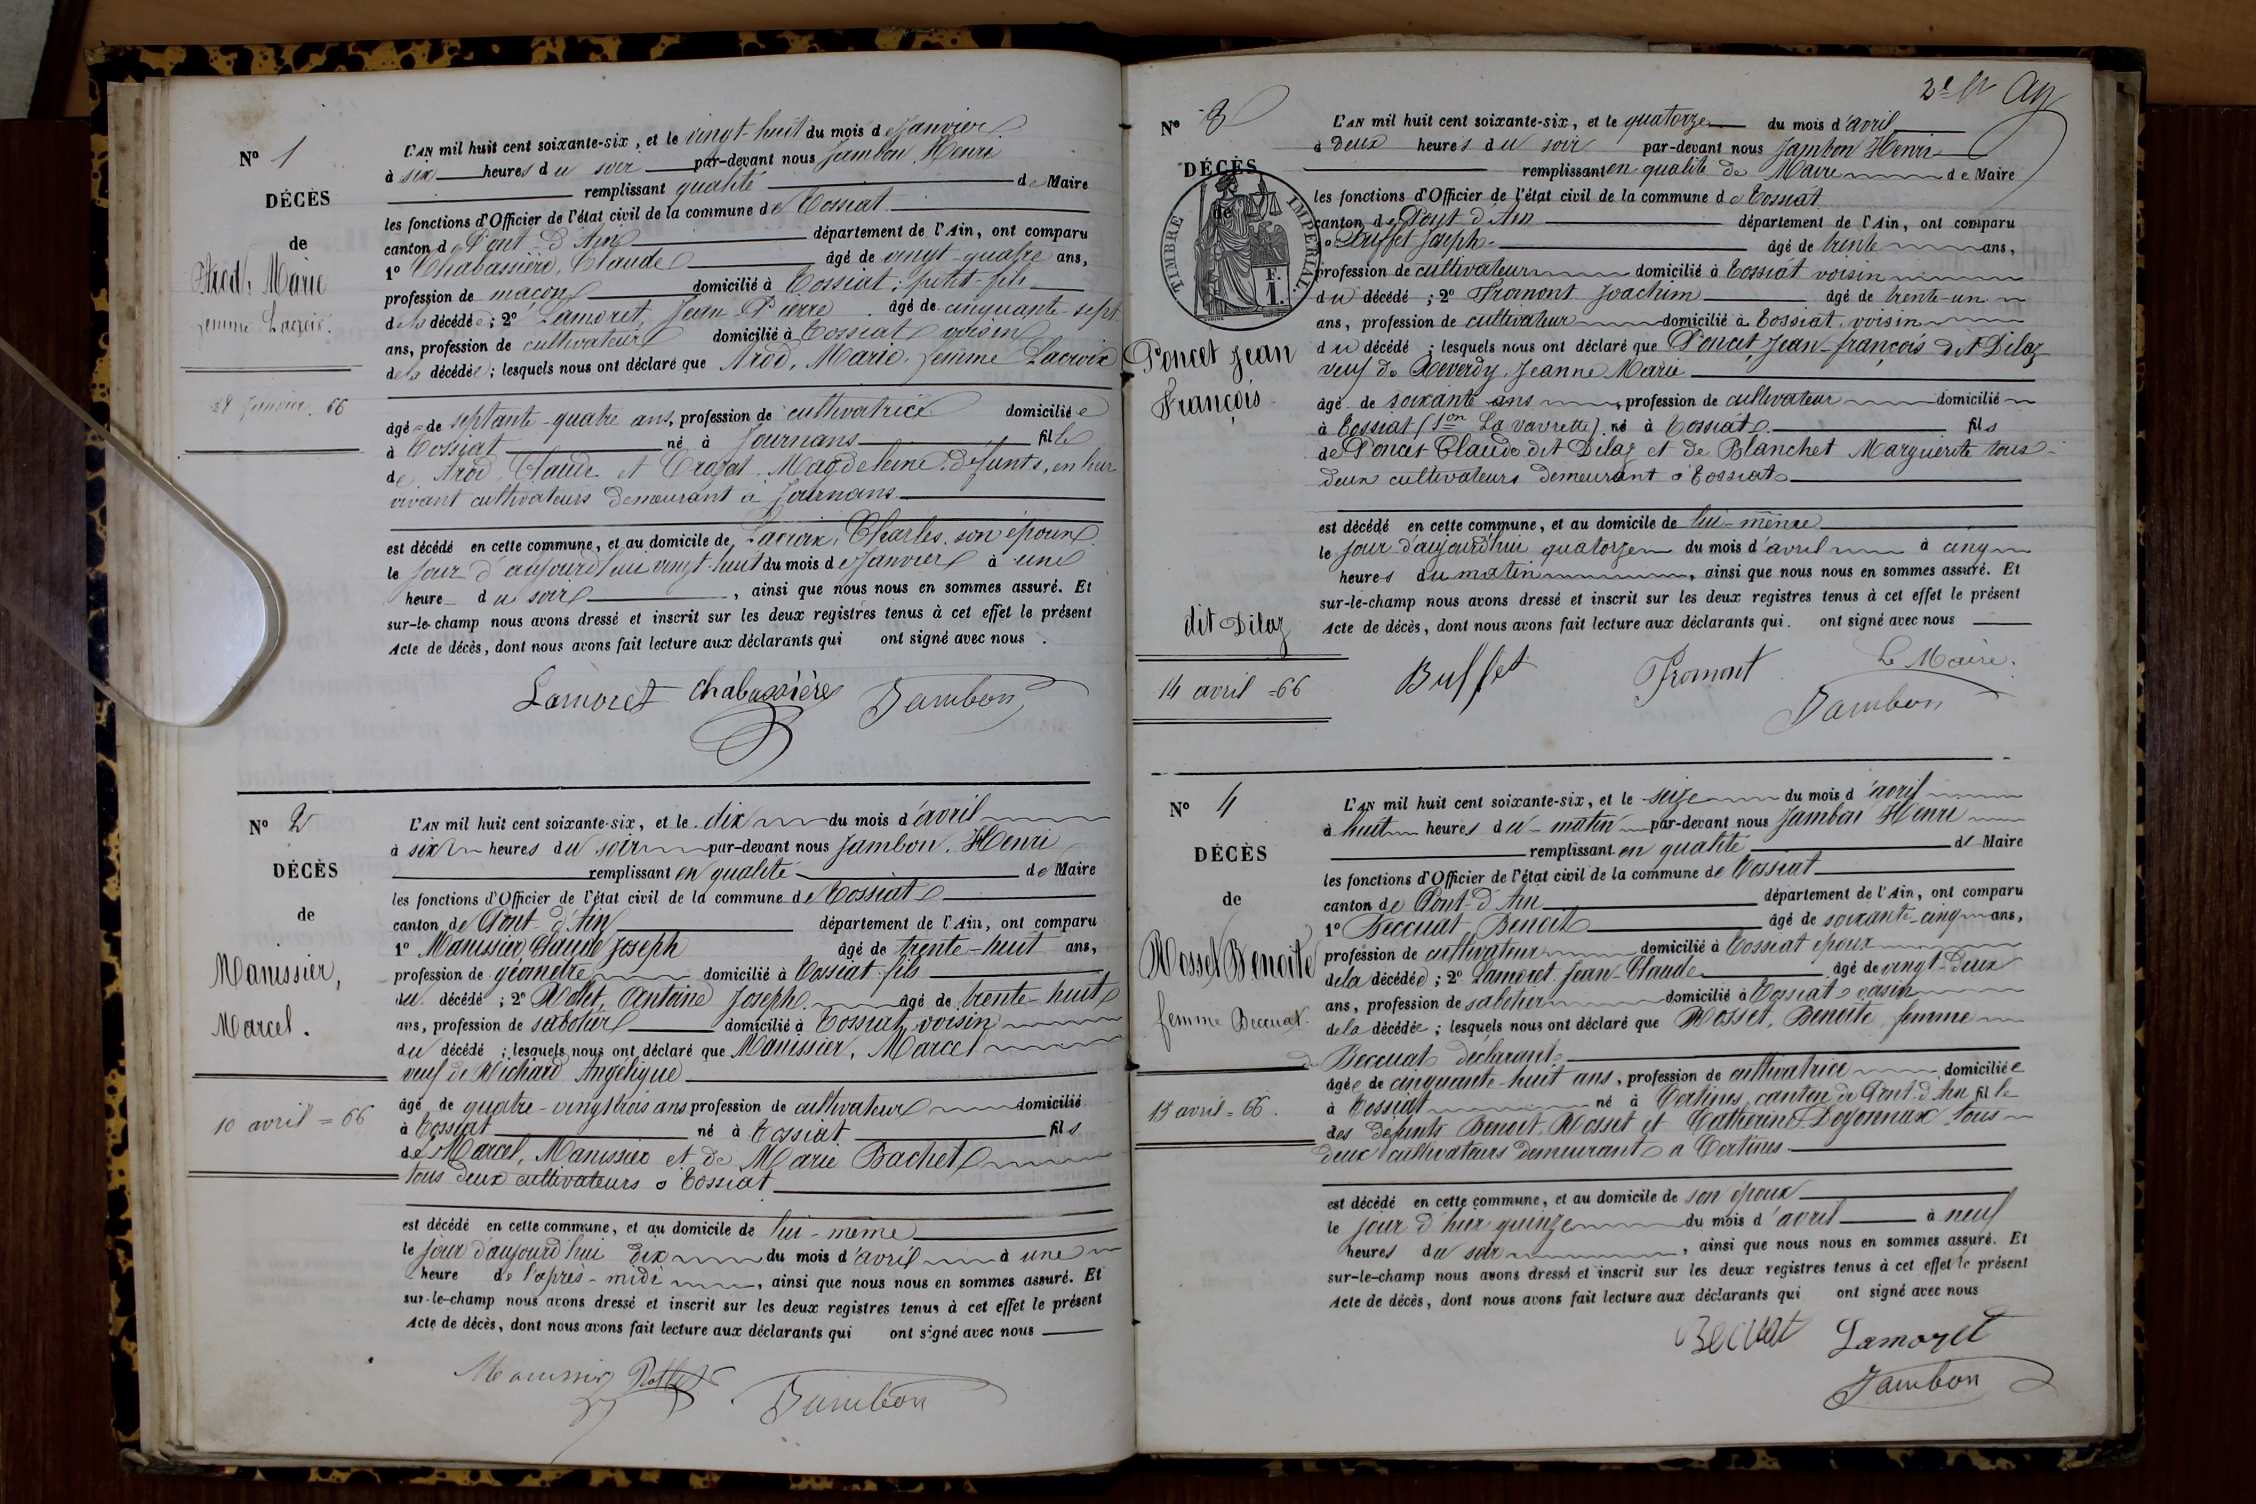 N° 1
DÉCÈS
de
Arod, Marie
femme Lacroix.
28 Janvier. 66
L'AN mil huit cent soixante-six, et le vingt-huit du mois de Janvier
à six heures du soir par-devant nous Jambon Henri
remplissant qualité de Maire
les fonctions d'Officier de l'état civil de la commune de Tossiat
canton de Pont-d'Ain département de l'Ain, ont comparu
1° Chabassière, Claude âgé de vingt-quatre ans,
profession de maçon domicilié à Tossiat ; petit-fils
de la décédée ; 2° Lamoret, Jean-Pierre. âgé de cinquante-sept
ans, profession de cultivateur domicilié à Tossiat voisin
de la décédée ; lesquels nous ont déclaré que Arod, Marie, femme Lacroix
âgée de septante-quatre ans, profession de cultivatrice domiciliée
à Tossiat né à Journans fille
de Arod, Claude et Magdeleine défunts, en leur
vivant cultivateurs demeurant à Journans
est décédé en cette commune, et au domicile de Lacroix, Charles, son époux
le jour d'aujourd'hui vingt-huit du mois de Janvier à une
heure du soir, ainsi que nous nous en sommes assuré. Et
sur-le-champ nous avons dressé et inscrit sur les deux registres tenus à cet effet le présent
Acte de décès, dont nous avons fait lecture aux déclarants qui ont signé avec nous.
Lamoret Chabassière Jambon
N° 2
DÉCÈS
de
Manissier,
Marcel.
10 avril = 66
L'AN mil huit cent soixante-six, et le dix du mois d'avril
à six heures du soir par-devant nous Jambon, Henri
remplissant en qualité de Maire
les fonctions d'Officier de l'état civil de la commune de Tossiat
canton de Pont-d'Ain département de l'Ain, ont comparu
1° Manissier, Claude Joseph âgé de trente-huit ans,
profession de géomètre domicilié à Tossiat fils
du décédé ; 2° Rollet, Antoine Joseph. âgé de trente-huit
ans, profession de sabotier domicilié à Tossiat, voisin
du décédé ; lesquels nous ont déclaré que Manissier, Marcel
veuf de Richard Angélique
âgé de quatre-vingt trois ans profession de cultivateur domicilié
à Tossiat né à Tossiat fils
de Marcel, Manissier et de Marie Bachet
tous deux cultivateurs à Tossiat
est décédé en cette commune, et au domicile de lui-même
le jour d'aujourd'hui dix du mois d'avril à une
heure de l'après-midi, ainsi que nous nous en sommes assuré. Et
sur-le-champ nous avons dressé et inscrit sur les deux registres tenus à cet effet le présent
Acte de décès, dont nous avons fait lecture aux déclarants qui ont signé avec nous
Manissier Rollet Jambon
N° 3
DÉCÈS
de
TIMBRE IMPÉRIAL.
F.
1.
Poncet Jean
François
dit Dilaz
14 avril = 66
L'AN mil huit cent soixante-six, et le quatorze du mois d'avril
à deux heures du soir par-devant nous Jambon Henri
remplissant en qualité de Maire de Maire
les fonctions d'Officier de l'état civil de la commune de Tossiat
canton de Pont d'Ain département de l'Ain, ont comparu
1° Buffet Joseph âgé de trente ans,
profession de cultivateur domicilié à Tossiat voisin
du décédé ; 2° Promont Joachim âgé de trente-un
ans, profession de cultivateur domicilié à Tossiat, voisin
du décédé ; lesquels nous ont déclaré que Poncet, Jean-françois dit Dilaz
veuf de Reverdy, Jeanne Marie
âgé de soixante ans, profession de cultivateur domicilié
à Tossiat (son La vavrette) né à Tossiat fils
de Poncet Claude dit Dilaz et de Blanchet Marguerite tous
deux cultivateurs demeurant à Tossiat
est décédé en cette commune, et au domicile de lui-même
le jour d'aujourd'hui quatorze du mois d'avril à cinq
heures du matin, ainsi que nous nous en sommes assuré. Et
sur-le-champ nous avons dressé et inscrit sur les deux registres tenus à cet effet le présent
Acte de décès, dont nous avons fait lecture aux déclarants qui. ont signé avec nous
Buffet Promont Le Maire.
Jambon
N° 4
DÉCÈS
de
Mosset Benoite
femme Beccuat.
15 avril = 66.
L'AN mil huit cent soixante-six, et le seize du mois d'avril
à huit heures du matin par-devant nous Jambon Henri
remplissant en qualité de Maire
les fonctions d'Officier de l'état civil de la commune de Tossiat
canton de Pont-d'Ain département de l'Ain, ont comparu
1° Beccuat Benoit âgé de soixante-cinq ans,
profession de cultivateur domicilié à Tossiat époux
de la décédée ; 2° Lamoret Jean-Claude âgé de vingt-deux
ans, profession de sabotier domicilié à Tossiat voisin
de la décédée ; lesquels nous ont déclaré que Mosset, Benoite, femme
Beccuat déclarant
âgée de cinquante-huit ans, profession de cultivatrice domiciliée
à Tossiat né à Certines, canton de Pont-d'Ain fille
des défunts Benoit, Mosset et Catherine Doyonnax tous
deux cultivateurs demeurant à Certines
est décédé en cette commune, et au domicile de son époux
le jour d'hier quinze du mois d'avril à neuf
heures du soir, ainsi que nous nous en sommes assuré. Et
sur-le-champ nous avons dressé et inscrit sur les deux registres tenus à cet effet le présent
Acte de décès, dont nous avons fait lecture aux déclarants qui ont signé avec nous
Becuat Lamoret
Jambon